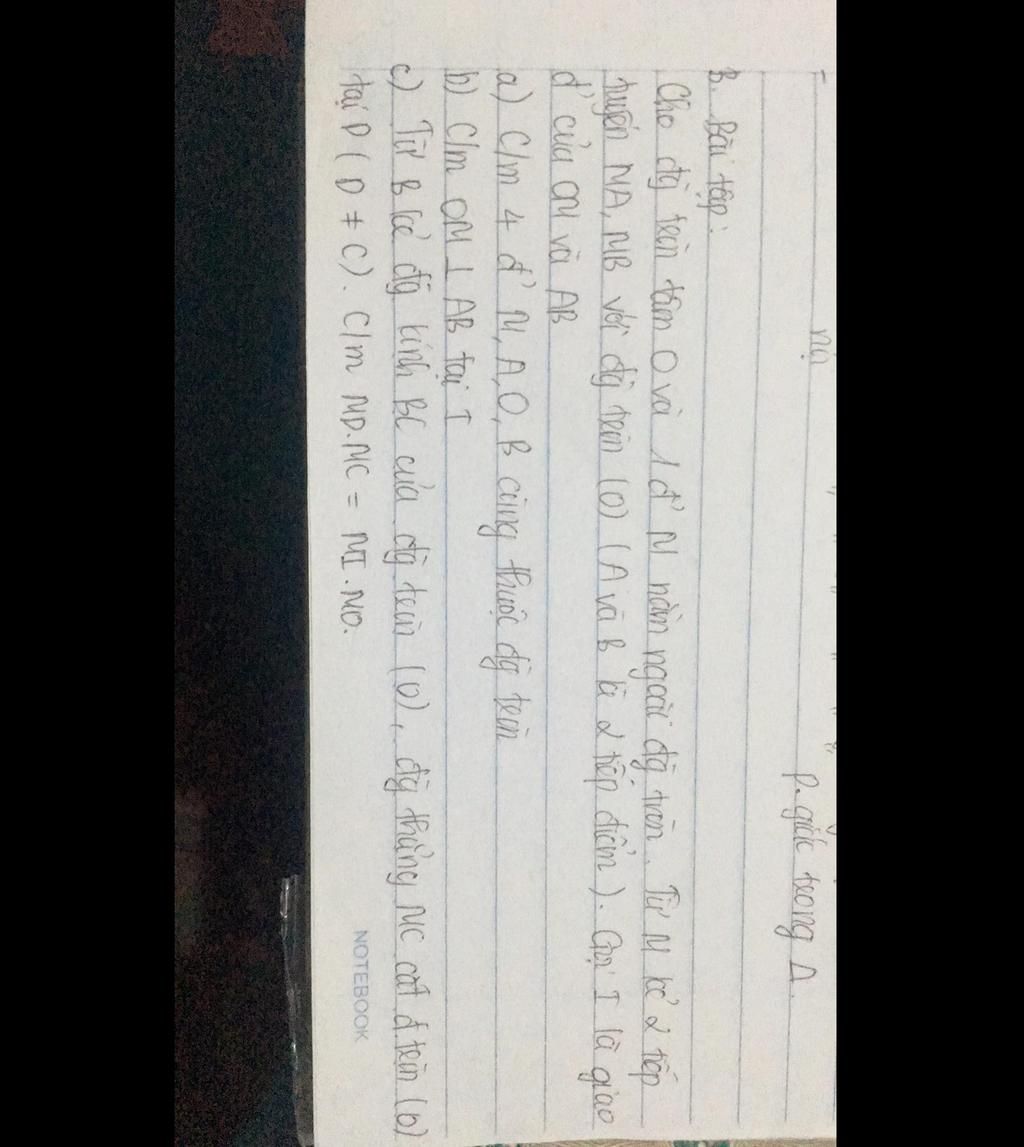 nọ
p. giác trong Δ.
B. Bài tập:
Cho đg tròn tâm O và 1 đ' M nằm ngoài đg tròn. Từ M kẻ 2 tiếp
tuyến MA, MB với đg tròn (O) (A và B là 2 tiếp điểm). Gọi I là giao
đ' của OM và AB
a) C/m 4 đ' M, A, O, B cùng thuộc đg tròn
b) C/m OM ⊥ AB tại I
c) Từ B kẻ đg kính BC của đg tròn (O), đg thẳng MC cắt đ. tròn (O)
tại D (D ≠ C). C/m MD.MC = MI.MO.
NOTEBOOK